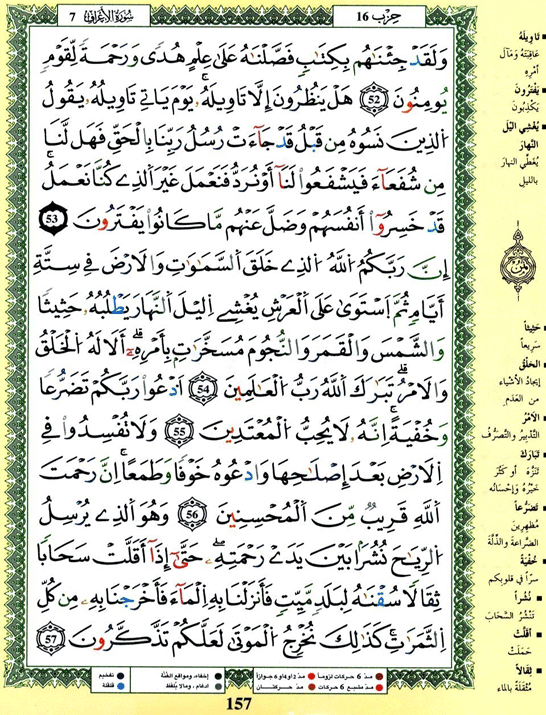 سُورَةُ الْأَعْرَافِ 7
حِزْب 16
وَلَقَدْ جِئْنَٰهُم بِكِتَٰبٍ فَصَّلْنَٰهُ عَلَىٰ عِلْمٍ هُدًى وَرَحْمَةً لِّقَوْمٍ
يُومِنُونَ 52 هَلْ يَنظُرُونَ إِلَّا تَاوِيلَهُۥ يَوْمَ يَاتِے تَاوِيلُهُۥ يَقُولُ
اُ۬لذِينَ نَسُوهُ مِن قَبْلُ قَدْ جَآءَتْ رُسُلُ رَبِّنَا بِالْحَقِّ فَهَل لَّنَا
مِن شُفَعَآءَ فَيَشْفَعُواْ لَنَآ أَوْ نُرَدُّ فَنَعْمَلَ غَيْرَ اَ۬لذِے كُنَّا نَعْمَلُ
قَدْ خَسِرُوٓاْ أَنفُسَهُمْ وَضَلَّ عَنْهُم مَّا كَانُواْ يَفْتَرُونَ 53
إِنَّ رَبَّكُمُ اُ۬للَّهُ اُ۬لذِے خَلَقَ اَ۬لسَّمَٰوَٰتِ وَالَارْضَ فِے سِتَّةِ
أَيَّامٍ ثُمَّ اَ۪سْتَوَىٰ عَلَى اَ۬لْعَرْشِ يُغْشِے اِ۬ليْلَ اَ۬لنَّهَارَ يَطْلُبُهُۥ حَثِيثًا
وَالشَّمْسَ وَالْقَمَرَ وَالنُّجُومَ مُسَخَّرَٰتِۢ بِأَمْرِهِۦٓ أَلَا لَهُ اُ۬لْخَلْقُ
وَالَامْرُ تَبَٰرَكَ اَ۬للَّهُ رَبُّ اُ۬لْعَٰلَمِينَ 54 اَ۟دْعُواْ رَبَّكُمْ تَضَرُّعًا
وَخُفْيَةً إِنَّهُۥ لَا يُحِبُّ اُ۬لْمُعْتَدِينَ 55 وَلَا تُفْسِدُواْ فِے
اِ۬لَارْضِ بَعْدَ إِصْلَٰحِهَا وَادْعُوهُ خَوْفًا وَطَمَعًا إِنَّ رَحْمَتَ
اَ۬للَّهِ قَرِيبٌ مِّنَ اَ۬لْمُحْسِنِينَ 56 وَهُوَ اَ۬لذِے يُرْسِلُ
اُ۬لرِّيَٰحَ نُشُرًا بَيْنَ يَدَےْ رَحْمَتِهِۦ حَتَّىٰٓ إِذَآ أَقَلَّتْ سَحَابًا
ثِقَالًا سُقْنَٰهُ لِبَلَدٍ مَّيِّتٍ فَأَنزَلْنَا بِهِ اِ۬لْمَآءَ فَأَخْرَجْنَا بِهِۦ مِن كُلِّ
اِ۬لثَّمَرَٰتِ كَذَٰلِكَ نُخْرِجُ اُ۬لْمَوْتَىٰ لَعَلَّكُمْ تَذَّكَّرُونَ 57
تَاوِيلَهُ
عَاقِبَتَهُ وَمَآلَ
أَمْرِهِ
يَفْتَرُونَ
يَكْذِبُونَ
يُغْشِي الَيْلَ
النَّهَارَ
يُغَطِّي النهارَ
بالليلِ
ثمُن
حَثِيثاً
سَرِيعاً
الخَلْقُ
إيجادُ الأشْيَاء
من العَدَم
الَامْرُ
التَّدْبِيرُ والتَّصَرُّفُ
تَبَارَكَ
تَنَزَّهَ أو كَثُرَ
خَيْرُهُ وإحْسَانُه
تَضَرُّعاً
مظهرين
الضَّراعةَ والذِّلَّةَ
خُفْيَةً
سِرّاً في قلوبِكم
نُشُراً
تَنْشُرُ السَّحَابَ
أقَلَّتْ
حَمَلَتْ
ثِقَالاً
مُثْقَلَةً بالماء
مدّ 6 حركات لزوماً مدّ 2 أو 4 أو 6 جوازاً إخفاء، ومواقع الغُنَّة تفخيم
مدّ مشبع 6 حركات مدّ حركتان إدغام، وما لا يُلفَظ قلقلة
157